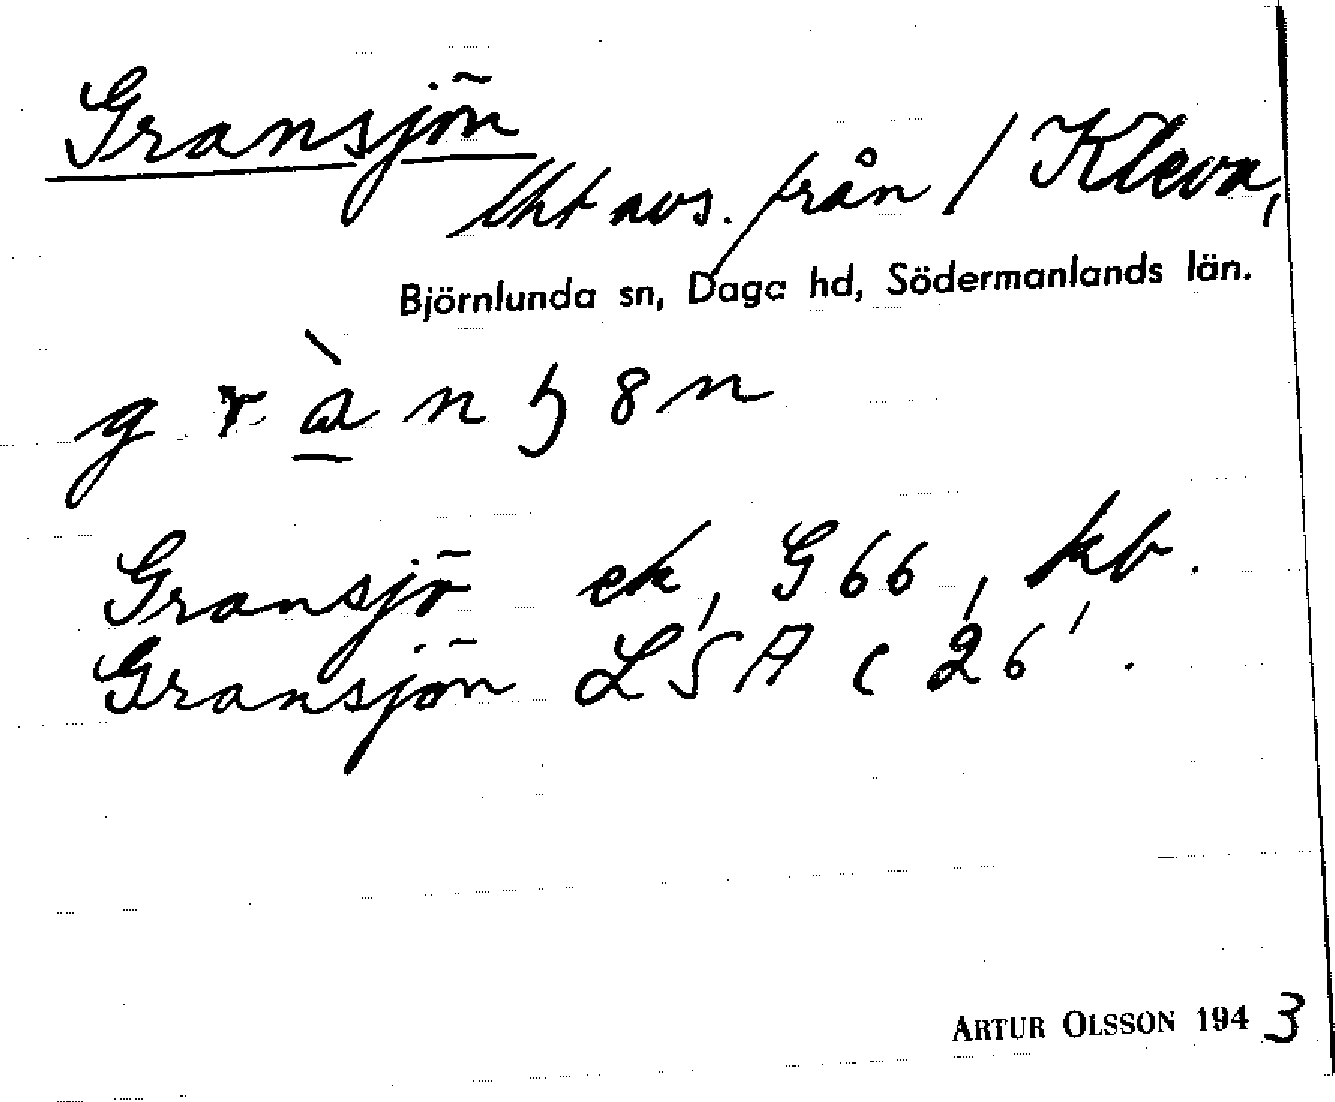 Gransjön
lht avs. från / Kleva,
Björnlunda sn, Daga hd, Södermanlands län.
g r à n ɧ 8 n
Gransjö ek, G 66, kb.
Gransjön LSA C 26.
ARTUR OLSSON 1943